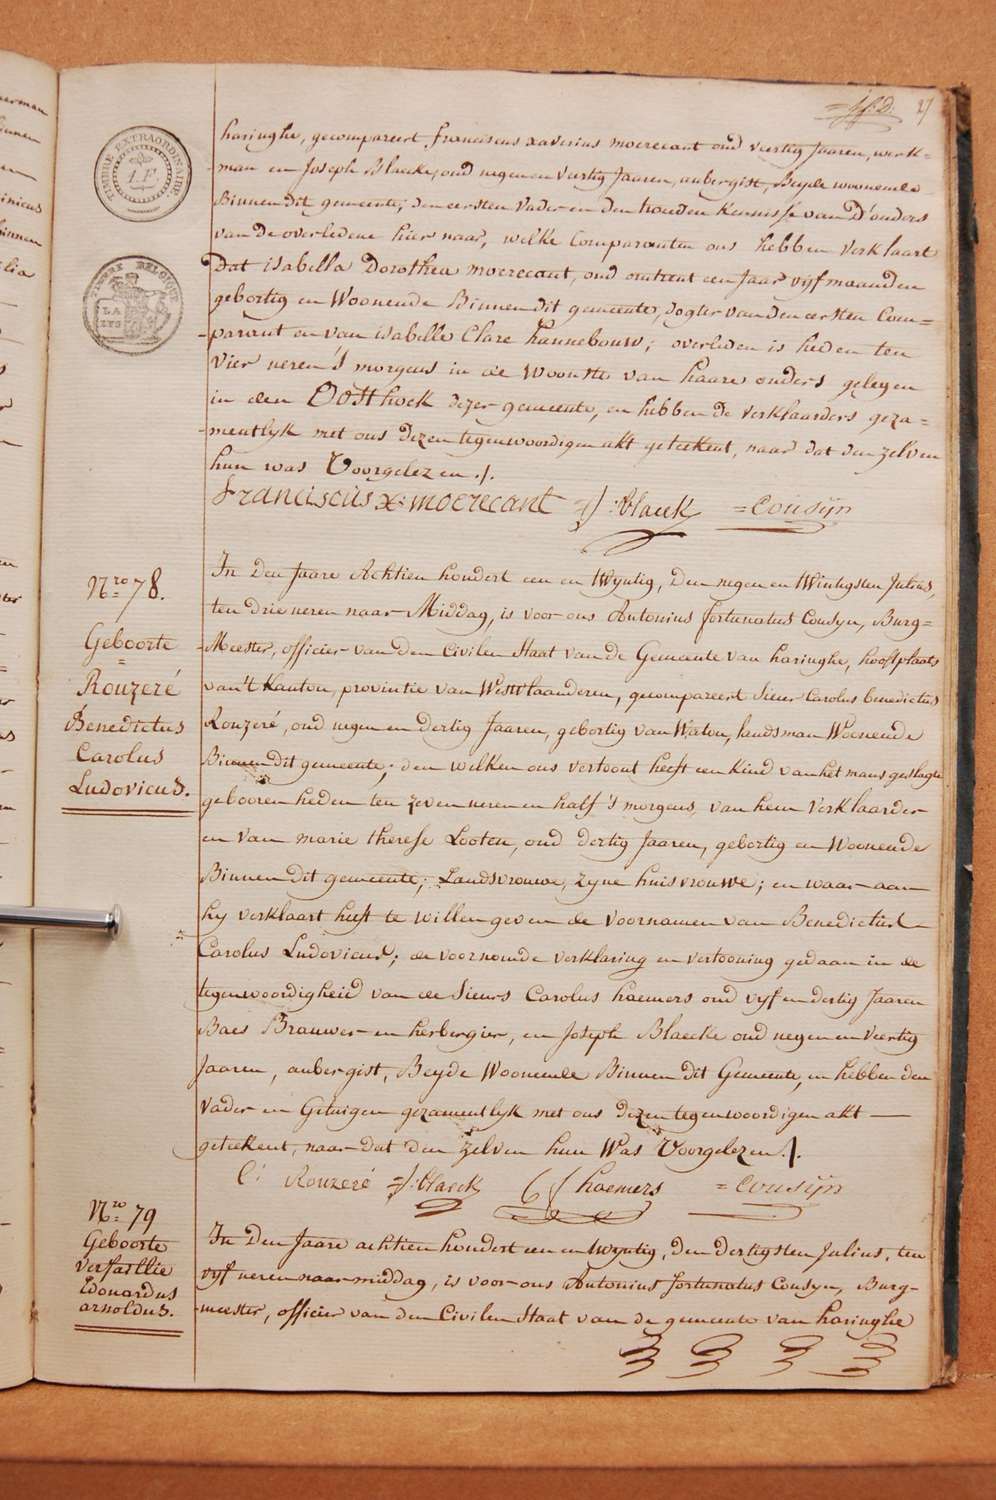 27
TIMBRE EXTRAORDINAIRE.
1. F.
TIMBRE BELGIQUE
LA
LYS
haringhe, gecompareert franciscus xaverius moerecant oud veertig Jaaren, werk=
-man en Joseph Blaecke, oud negen en veertig Jaaren, aubergist, Beyde woonende
Binnen dit gemeente; den eersten vader en den tweeden kennisse van d'ouders
van de overledene hier naer, welke Comparanten ons hebben verklaart
Dat isabella Dorothea moerecant, oud omtrent een Jaar vyf maanden
gebortig en Woonende Binnen dit gemeente, dogter van den eersten Com=
-parant en van isabelle Clare hannebouw; overleden is heden ten
vier ueren 's morgens in de Woonste van haare ouders gelegen
in den Oosthoek dezer gemeente, en hebben de verklaarders geza=
-mentlyk met ons dezen tegenwoordigen akt geteekent, naar dat den zelven
hun was Voorgelezen ./.
Franciscus X: moerecant J: Blaeck =Cousyn
Nro 78.
Geboorte
=
Rouzeré
Benedictus
Carolus
Ludovicus.
In Den Jaare Achtien hondert een en twyntig, Den negen en twintigsten Julius,
ten drie ueren naar Middag, is voor ons Antonius fortunatus Cousyn, Burg=
-Meester, officier van den Civilen Staat van de Gemeente van haringhe, hooftplaats
van't Kanton, provintie van Westvlaanderen, gecompareert Sieur Carolus benedictus
Rouzeré, oud negen en dertig Jaaren, gebortig van Watou, landsman Woonende
Binnen dit gemeente; den welken ons vertoont heeft een kind van het mans geslagte
gebooren heden ten zeven ueren en half 's morgens, van hem verklaarder
en van marie therese Looten, oud dertig Jaaren, gebortig en Woonende
Binnen dit gemeente, Landsvrouwe, zyne huisvrouwe; en waar aan
hy verklaart heeft te willen geven de voornamen van Benedictus
Carolus Ludovicus; de voornoemde verklaring en vertooning gedaan in de
tegenwoordigheid van de Sieurs Carolus haemers oud vyf en dertig Jaaren
Baes Brauwer en herbergier, en Joseph Blaecke oud negen en veertig
Jaaren, aubergist, Beyde Woonende Binnen dit Gemeente, en hebben den
vader en Getuigen gezamentlyk met ons dezen tegenwoordigen akt —
geteekent, naar dat den zelven hun Was Voorgelezen ./.
C: Rouzeré J: Blaeck C haemers =Cousyn
Nro 79
Geboorte
verfaillie
Edouardus
arnoldus.
In Den Jaare achtien hondert een en twyntig, den dertigsten Julius, ten
vyf ueren naar middag, is voor ons Antonius fortunatus Cousyn, Burg-
-meester, officier van den Civilen Staat van de gemeente van haringhe